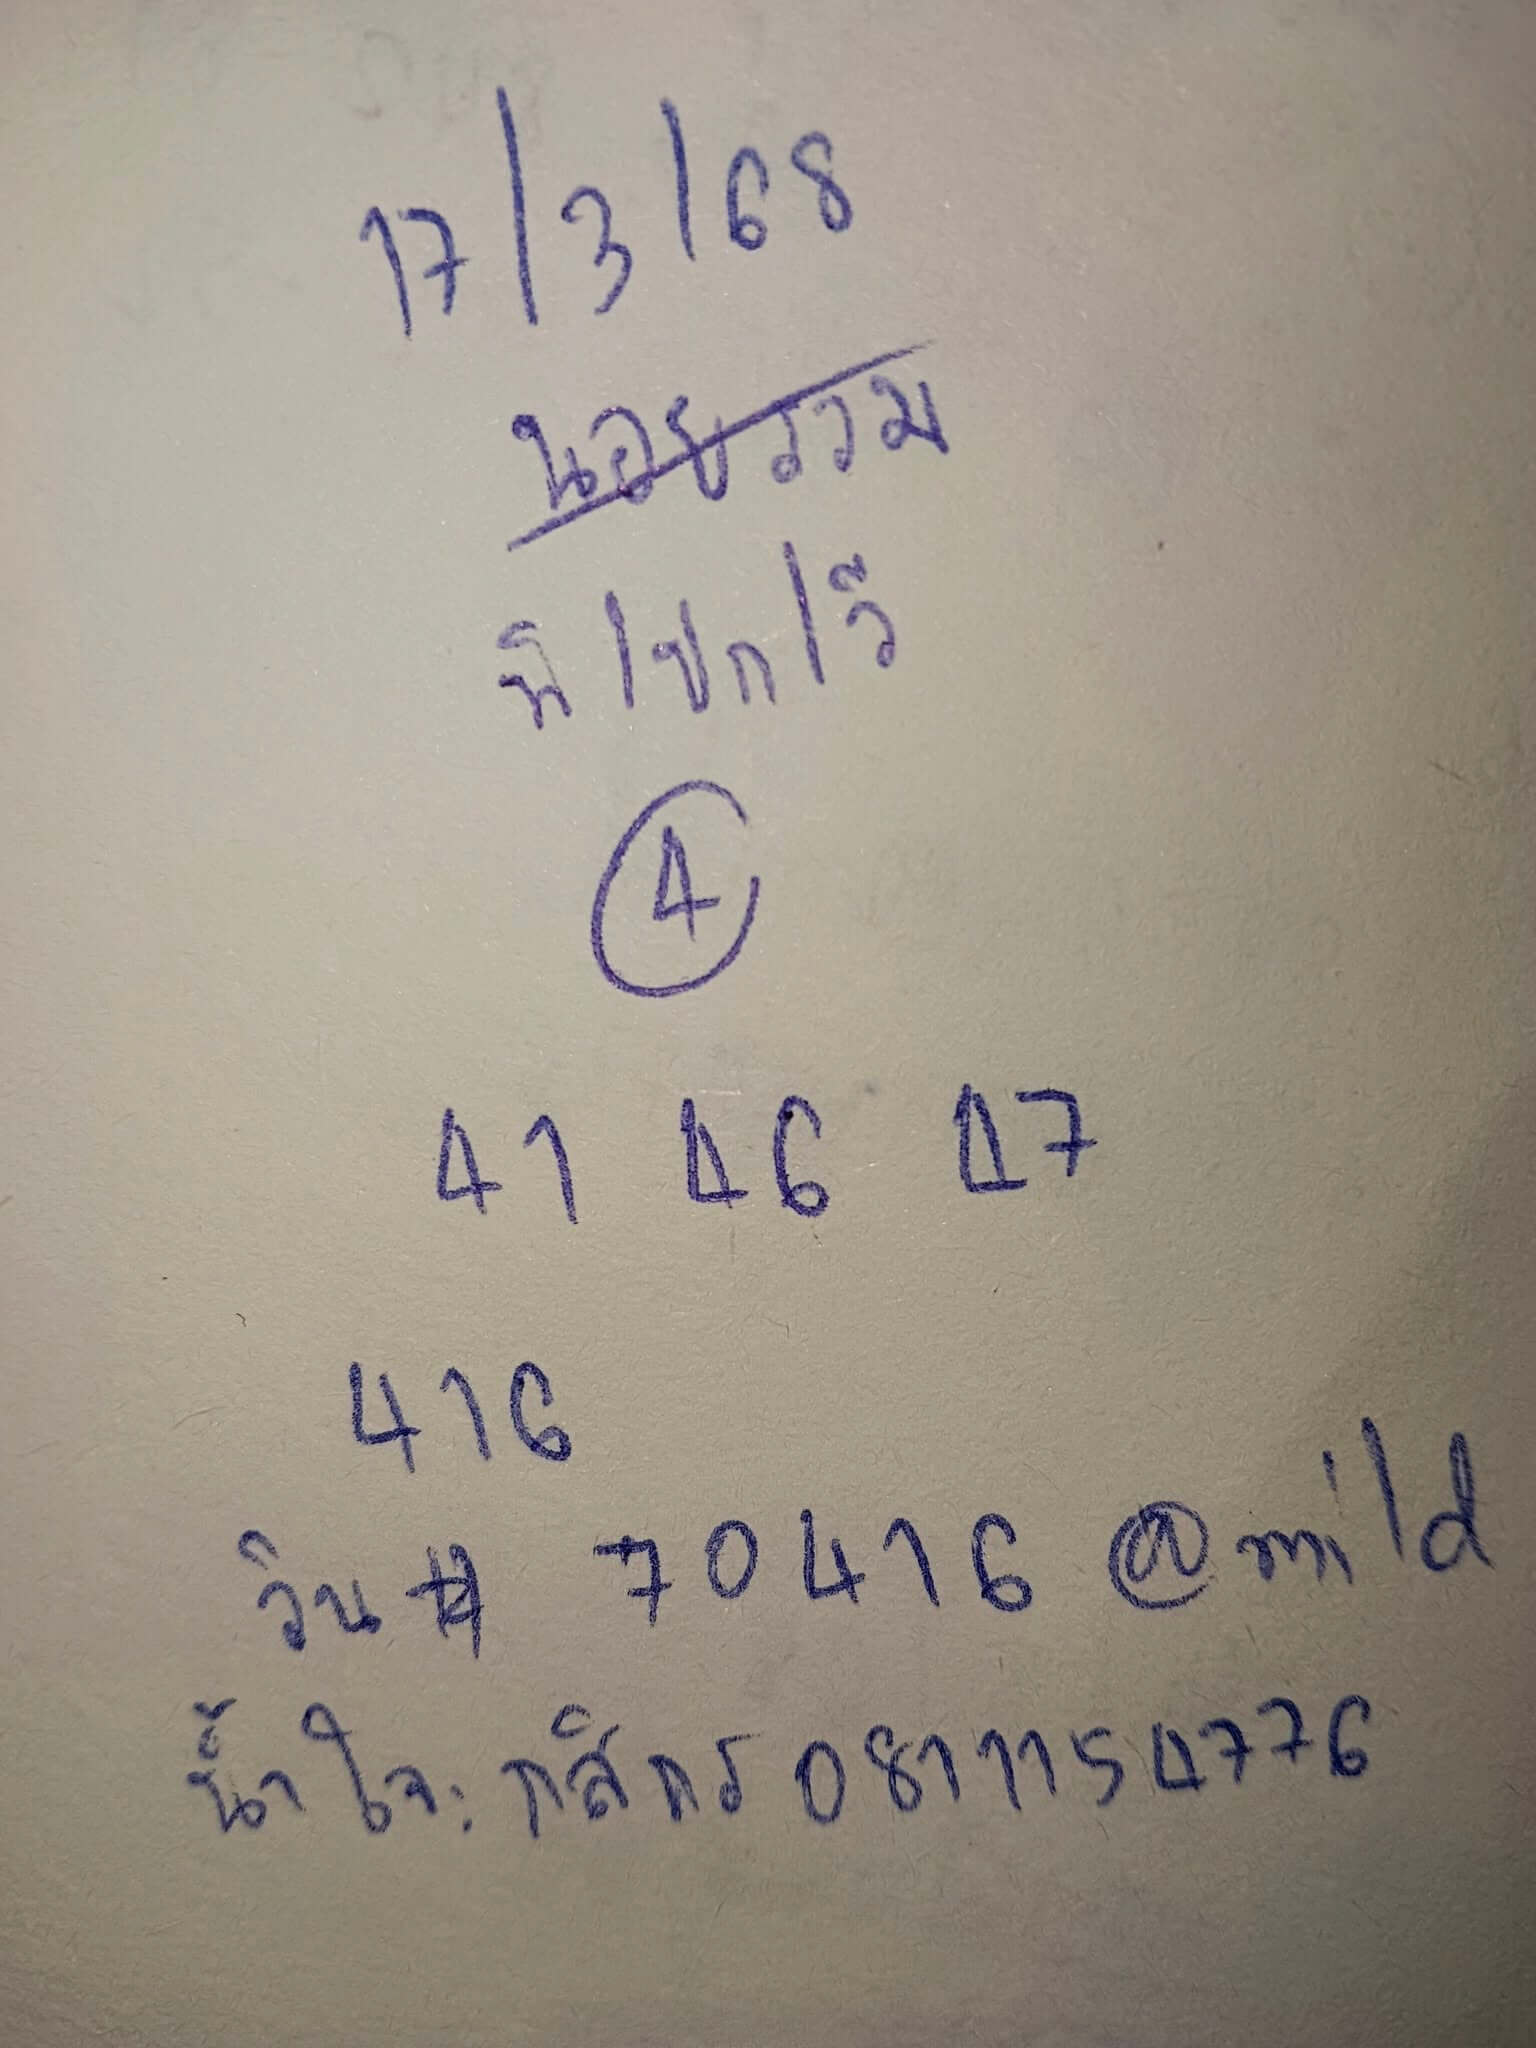 17/3/68
นอยรวม
พิ/ปก/วี
4
41 46 47
416
วิน # 70416 @mild
น้ำใจ: กสิกร 0811154776